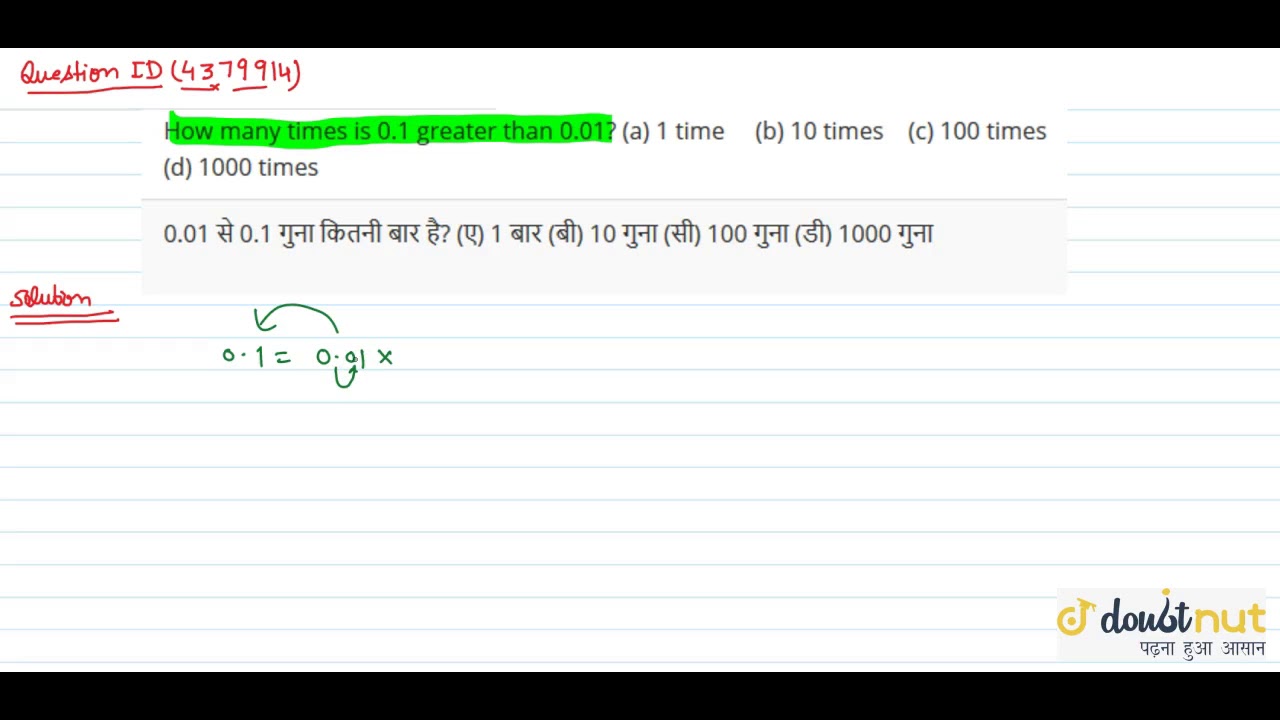 Question ID (4379914)
How many times is 0.1 greater than 0.01? (a) 1 time (b) 10 times (c) 100 times
(d) 1000 times
0.01 से 0.1 गुना कितनी बार है? (ए) 1 बार (बी) 10 गुना (सी) 100 गुना (डी) 1000 गुना
Solution
0.1 = 0.01 ×
doubtnut
पढ़ना हुआ आसान